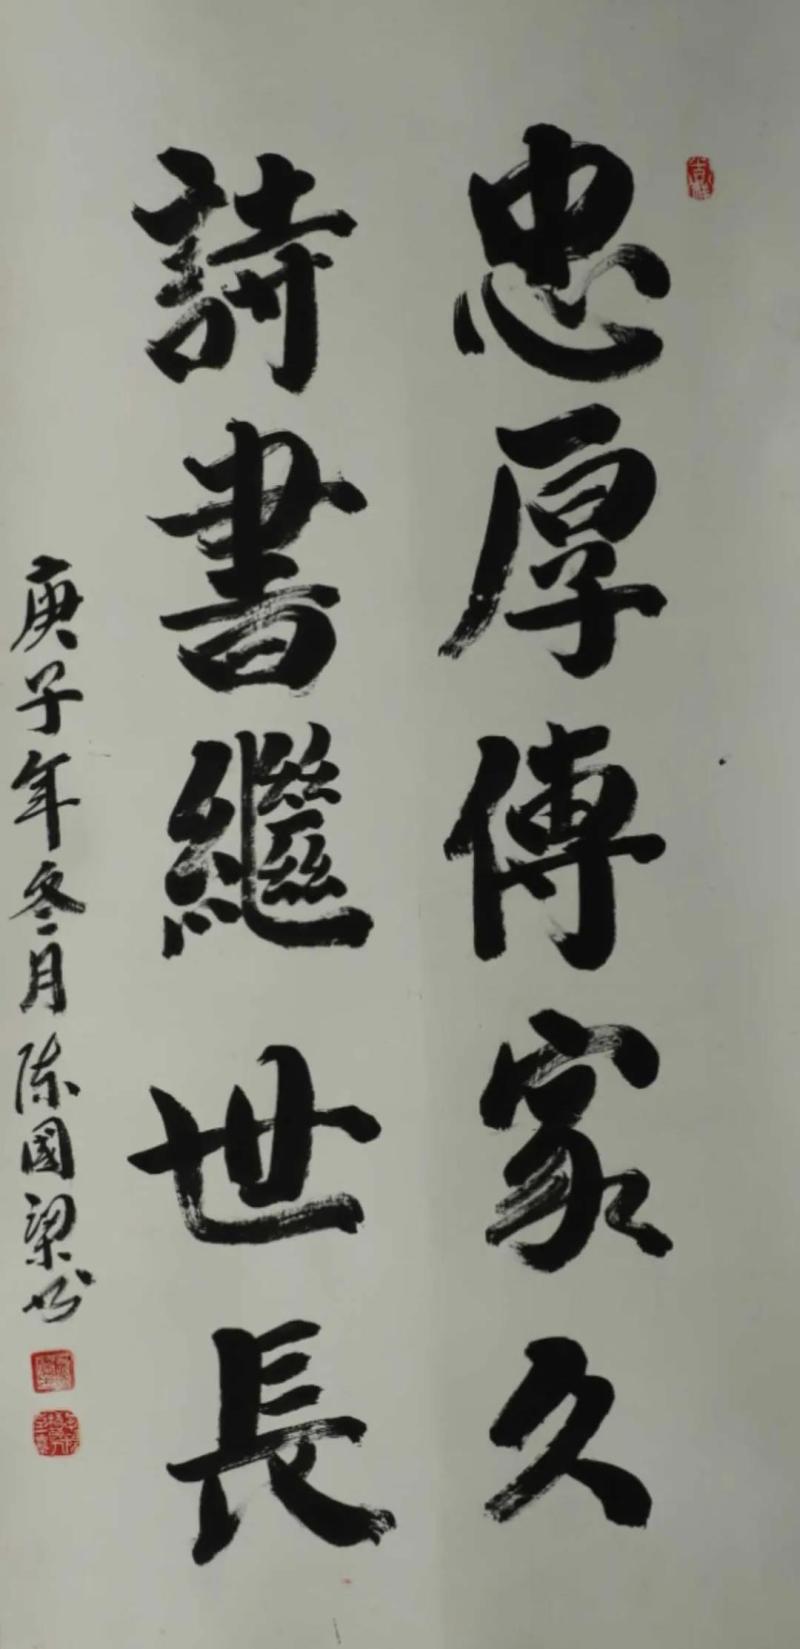 忠厚傳家久
詩書繼世長
庚子年冬月陳國梁书